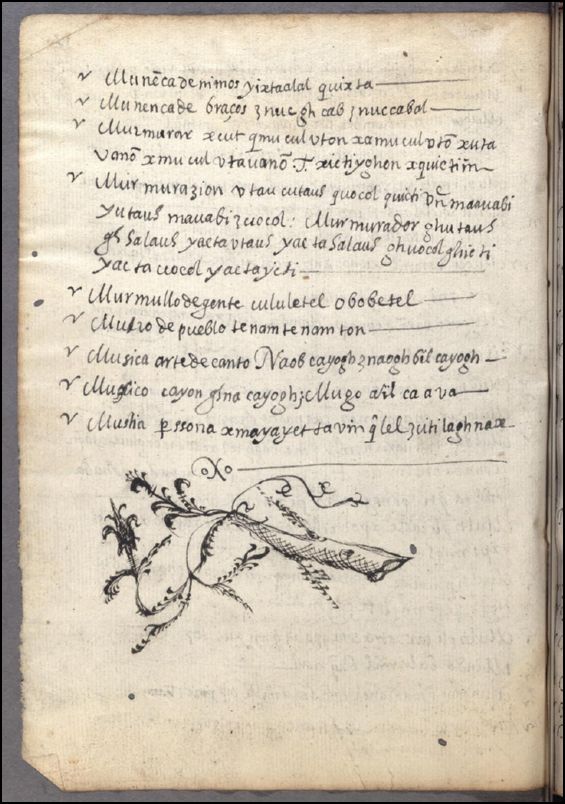 v Muñeca de ninos yixtaalal quixta
v Munenca de braços znuc gh cab znuccabal
v Murmurar xcut qmucul vton xamucul vtõ xuta
vanõ xmucul vtavanõ xictiyghon xquictim
v Murmurazion vtau cutaus quocol quicti maauabi
yutaus mauabi zuocol: Murmurador ghutaus
gh salaus yacta vtaus yacta salaus ghuocol ghicti
yacta vocol yactaycti
v Murmullo de gente cululetel obobetel
v Muro de pueblo tenam tenamton
v Musica arte de canto Naob cayogh znaogh bil cayogh
v Musico cayon ghna cayogh; Mugo asil caava
v Mustia perssona xmayayet tavin qlel zutilaghnax